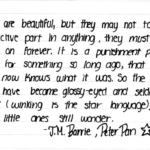 are beautiful, but they may not ta
ctive part in anything, they must
on forever. It is a punishment p
for something so long ago, that
now knows what it was. So the
have become glassy-eyed and seld
(winking is the star language),
little ones still wonder.
-J.M. Barrie, Peter Pan